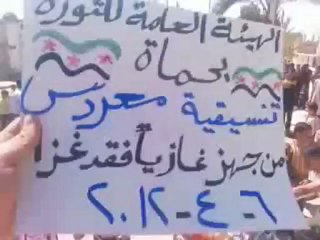 الهيئة العامة للثورة
بحماة
تنسيقية معردس
من جهز غازياً فقد غزا
٦-٤-٢٠١٢